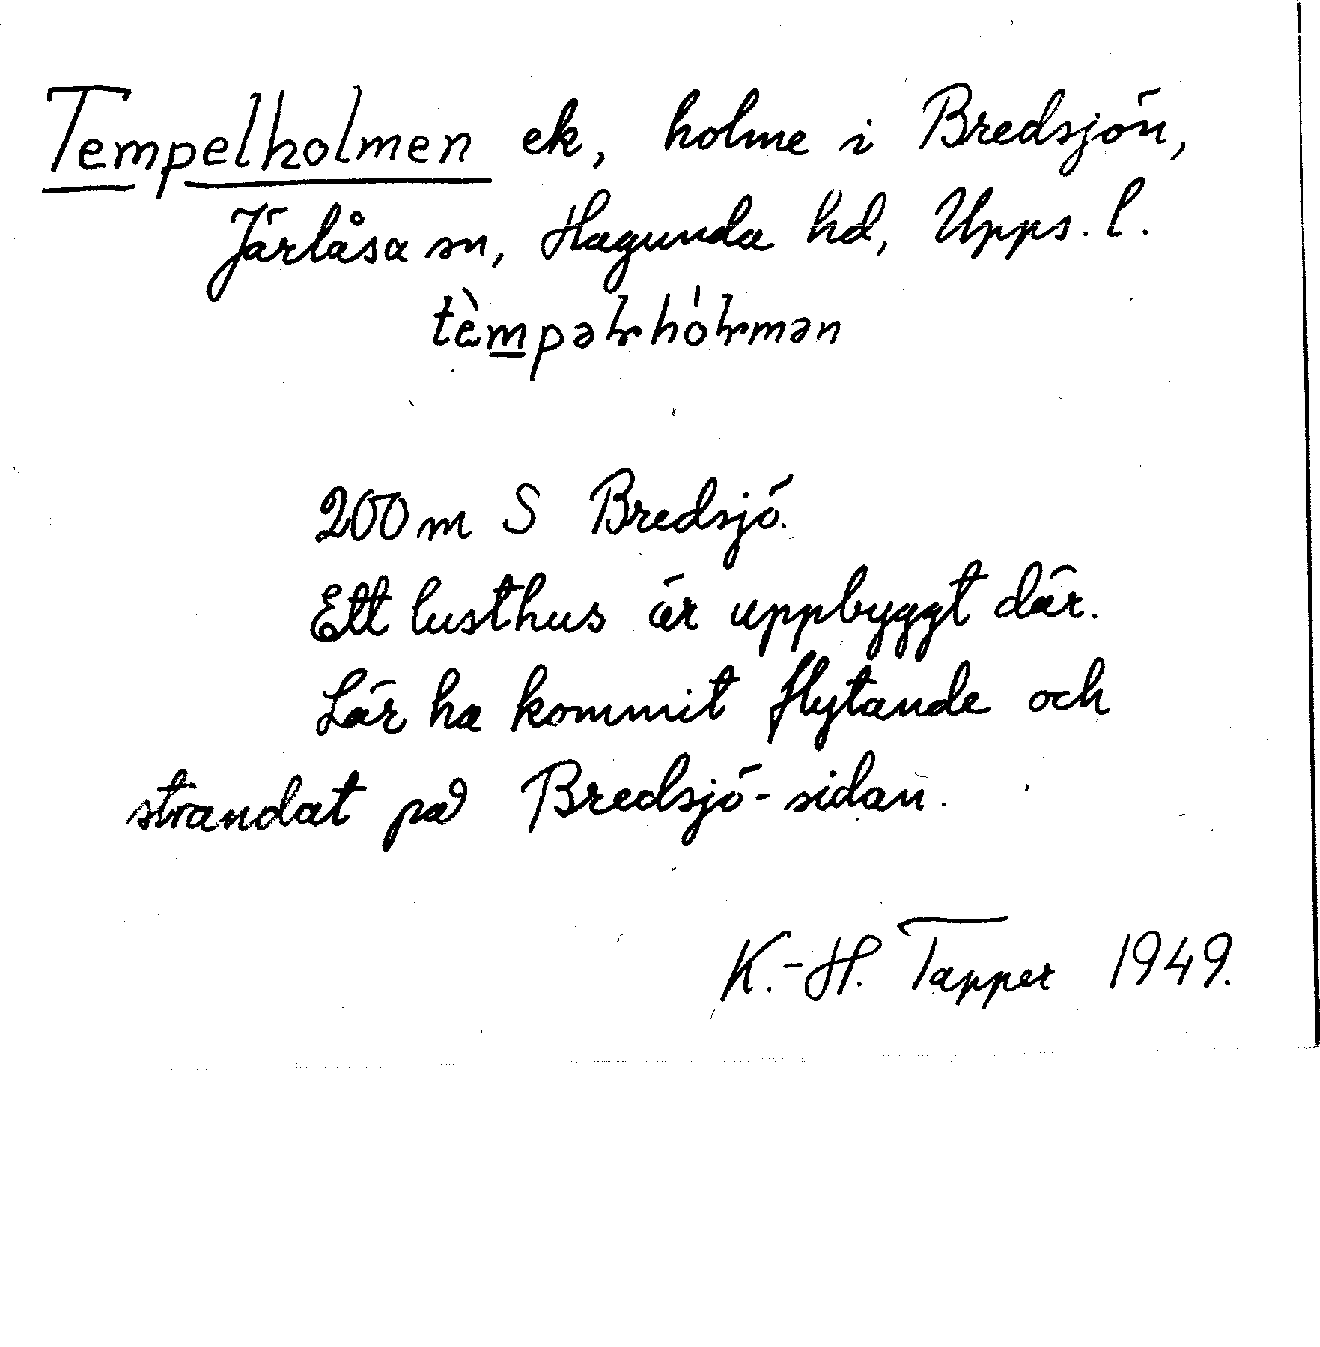 Tempelholmen ek, holme i Bredsjön,
Järlåsa sn, Hagunda hd, Upps. l.
200 m S Bredsjö.
Ett lusthus är uppbyggt där.
Lär ha kommit flytande och
strandat på Bredsjö-sidan.
K.-H. Tapper 1949.